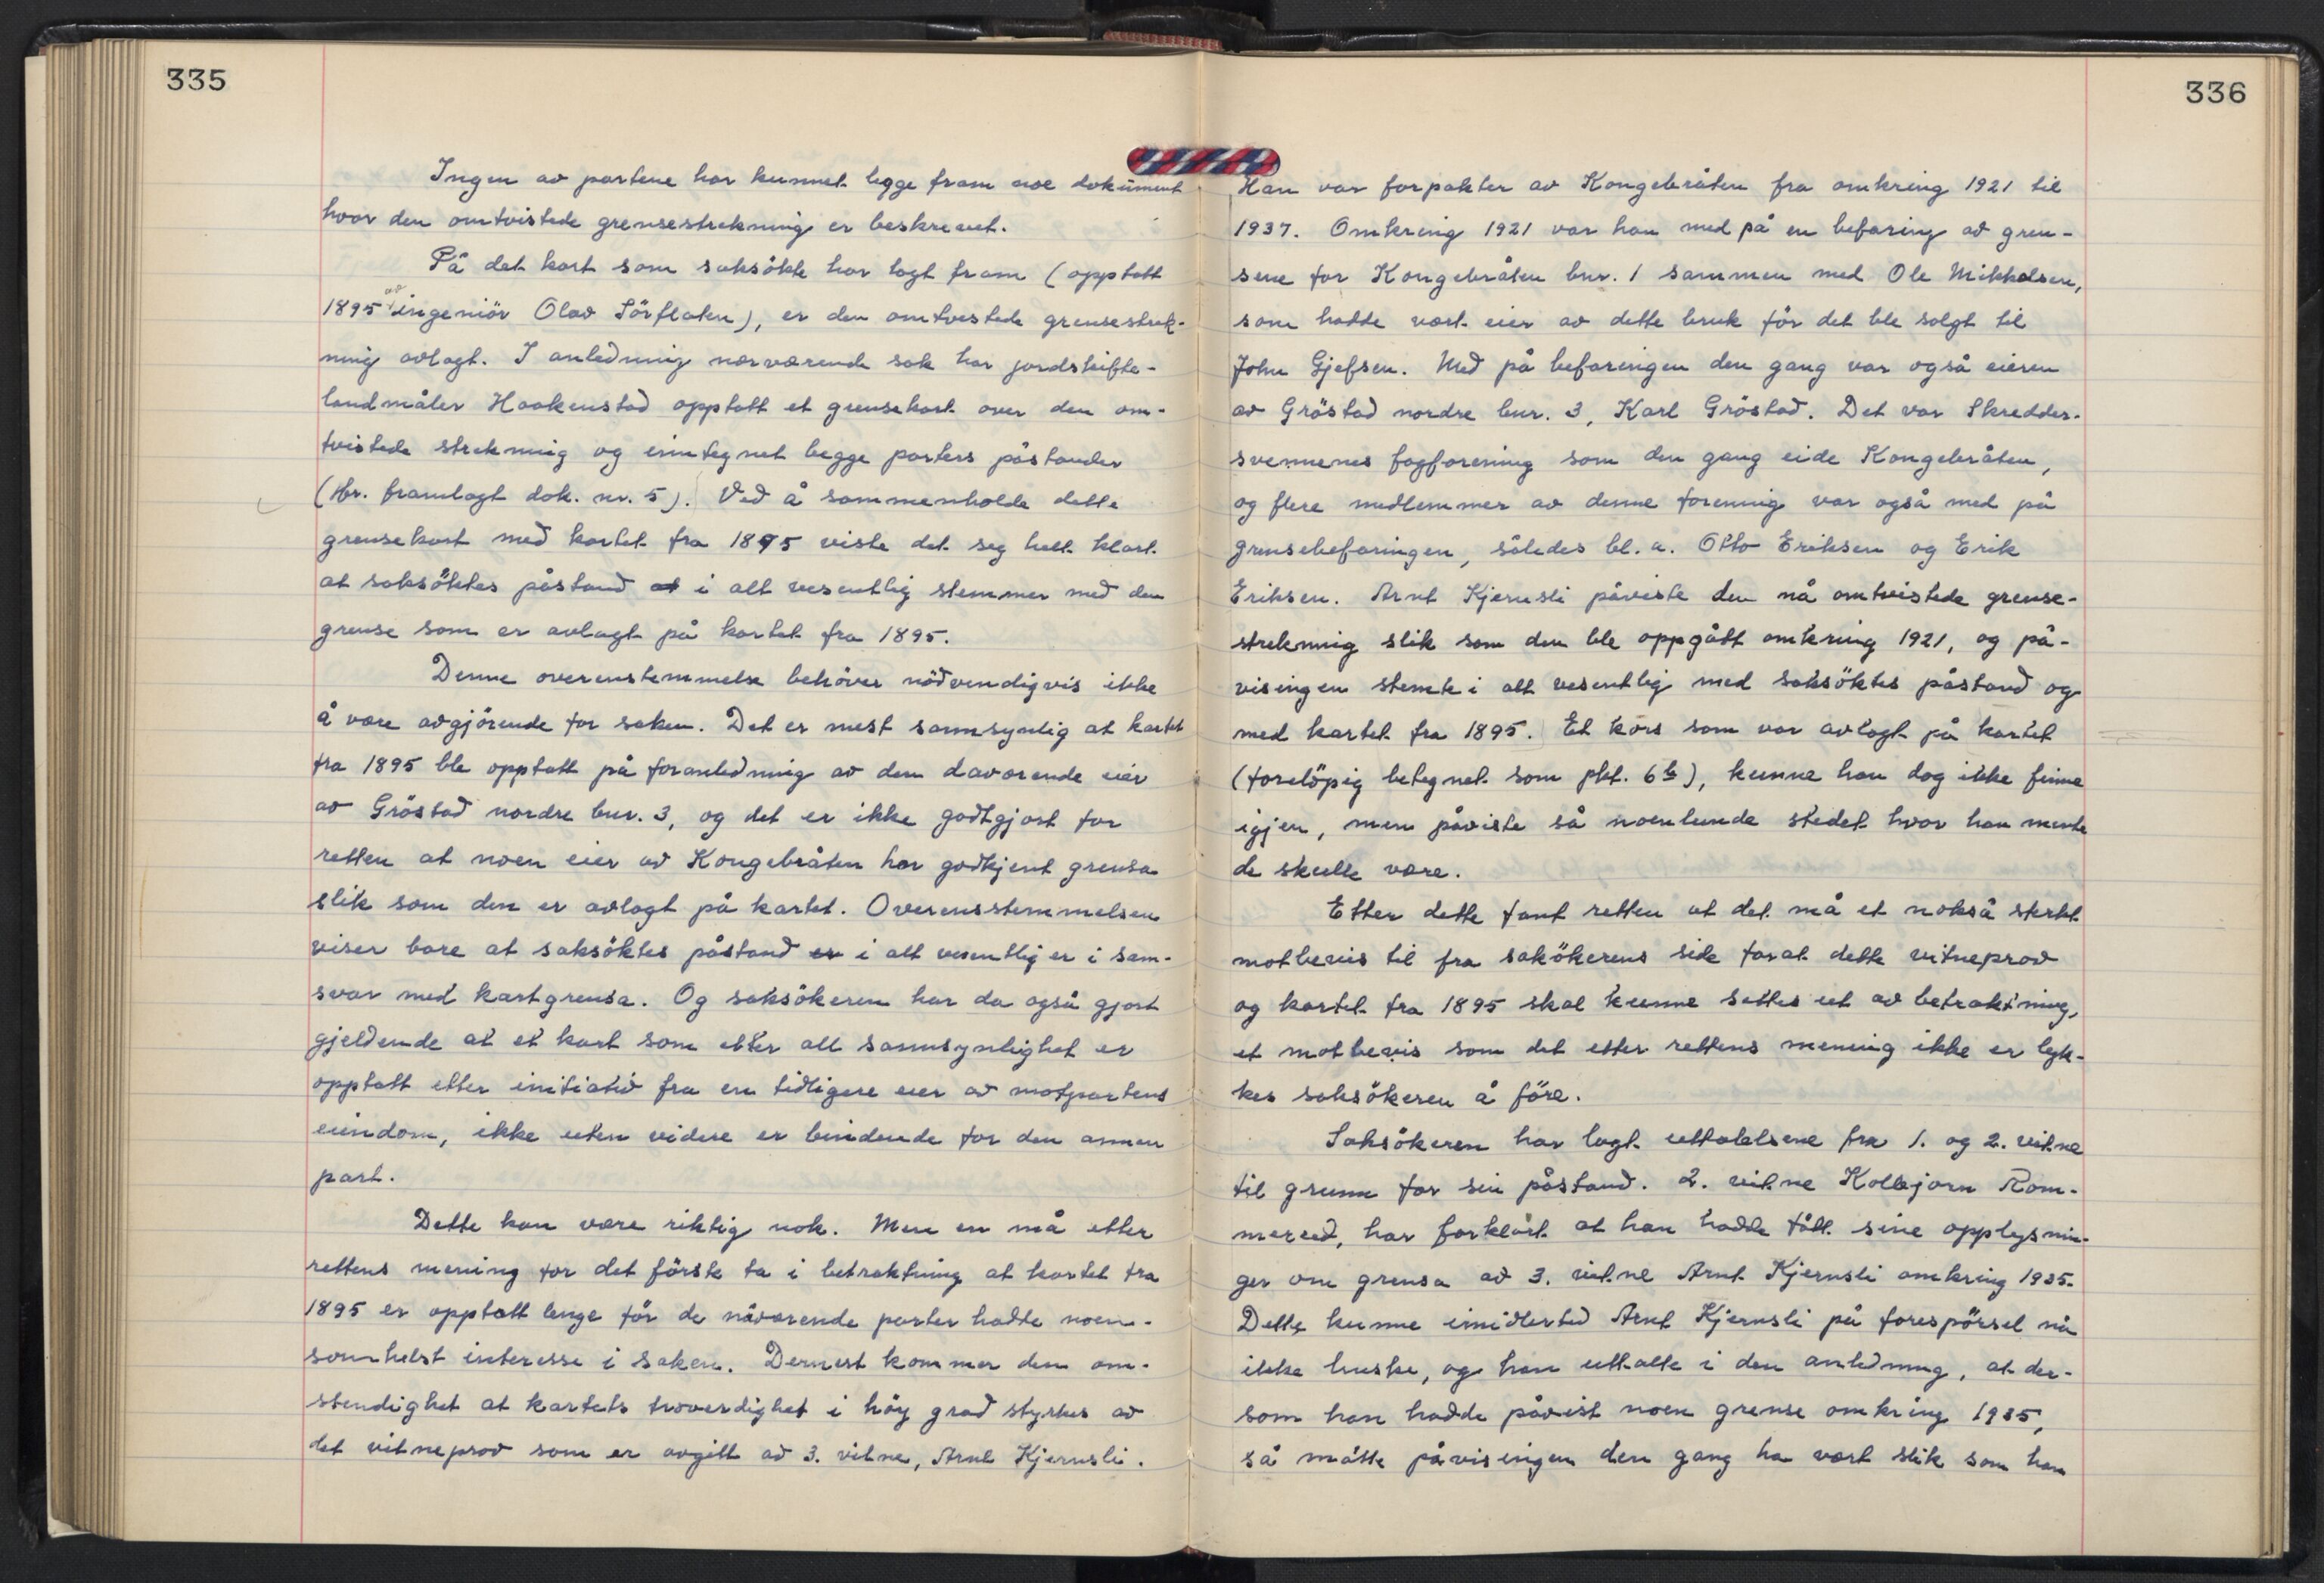 335
Ingen av partene har kunnet legge fram noe dokument
hvor den omtvistede grensestrekning er beskrevet.
På det kart som saksökte har lagt fram (opptatt
1895 av ingeniör Olav Sörflaten), er den omtvistede grensestrek-
ning avlagt. I anledning nærværende sak har jordskifte-
landmåler Haakenstad opptatt et grensekart over den om-
tvistede strekning og inntegnet begge parters påstander
(Hr. framlagt dok. nr. 5). Ved å sammenholde dette
grensekart med kartet fra 1895 viste det seg helt klart
at saksöktes påstand at i alt vesentlig stemmer med den
grense som er avlagt på kartet fra 1895.
Denne overenstemmelse behöver nödvendigvis ikke
å være avgjörende for saken. Det er mest sannsynlig at kartet
fra 1895 ble opptatt på foranledning av den daværende eier
av Gröstad nordre bnr. 3, og det er ikke godtgjort for
retten at noen eier av Kongebråten har godkjent grensa
slik som den er avlagt på kartet. Overensstemmelsen
viser bare at saksöktes påstand er i alt vesentlig er i sam-
svar med kartgrensa. Og saksökeren har da også gjort
gjeldende at et kart som etter all sannsynlighet er
opptatt etter initiativ fra en tidligere eier av motpartens
eiendom, ikke uten videre er bindende for den annen
part.
Dette kan være riktig nok. Men en må etter
rettens mening for det förste ta i betraktning at kartet fra
1895 er opptatt lenge för de nåværende parter hadde noen-
somhelst interesse i saken. Dernest kommer den om-
stendighet at kartets troverdighet i höy grad styrkes av
det vitneprov som er avgitt av 3. vitne, Arnt Kjernsli.
336
Han var forpakter av Kongebråten fra omkring 1921 til
1937. Omkring 1921 var han med på en befaring av gren-
sene for Kongebråten bnr. 1 sammen med Ole Mikkelsen,
som hadde vært eier av dette bruk för det ble solgt til
John Gjefsen. Med på befaringen den gang var også eieren
av Gröstad nordre bnr. 3, Karl Gröstad. Det var Skredder-
svennenes fagforening som den gang eide Kongebråten,
og flere medlemmer av denne forening var også med på
grensebefaringen, således bl. a. Otto Eriksen og Erik
Eriksen. Arnt Kjernsli påviste den nå omtvistede grense-
strekning slik som den ble oppgått omkring 1921, og på-
visingen stemte i alt vesentlig med saksöktes påstand og
med kartet fra 1895. Et kors som var avlagt på kartet
(forelöpig betegnet som pkt. 6b), kunne han dog ikke finne
igjen, men påviste så noenlunde stedet hvor han mente
de skulle være.
Etter dette fant retten at det må et nokså sterkt
motbevis til fra sakökerens side forat dette vitneprov
og kartet fra 1895 skal kunne settes ut av betraktning,
et motbevis som det etter rettens mening ikke er lyk-
kes saksökeren å före.
Saksökeren har lagt uttalelsene fra 1. og 2. vitne
til grunn for sin påstand. 2. vitne Kolbjörn Rom-
mereed, har forklart at han hadde fått sine opplysnin-
ger om grensa av 3. vitne Arnt Kjernsli omkring 1935.
Dette kunne imidlertid Arnt Kjernsli på forespörsel nå
ikke huske, og han uttalte i den anledning, at der-
som han hadde påvist noen grense omkring 1935,
så måtte påvisingen den gang ha vært slik som han